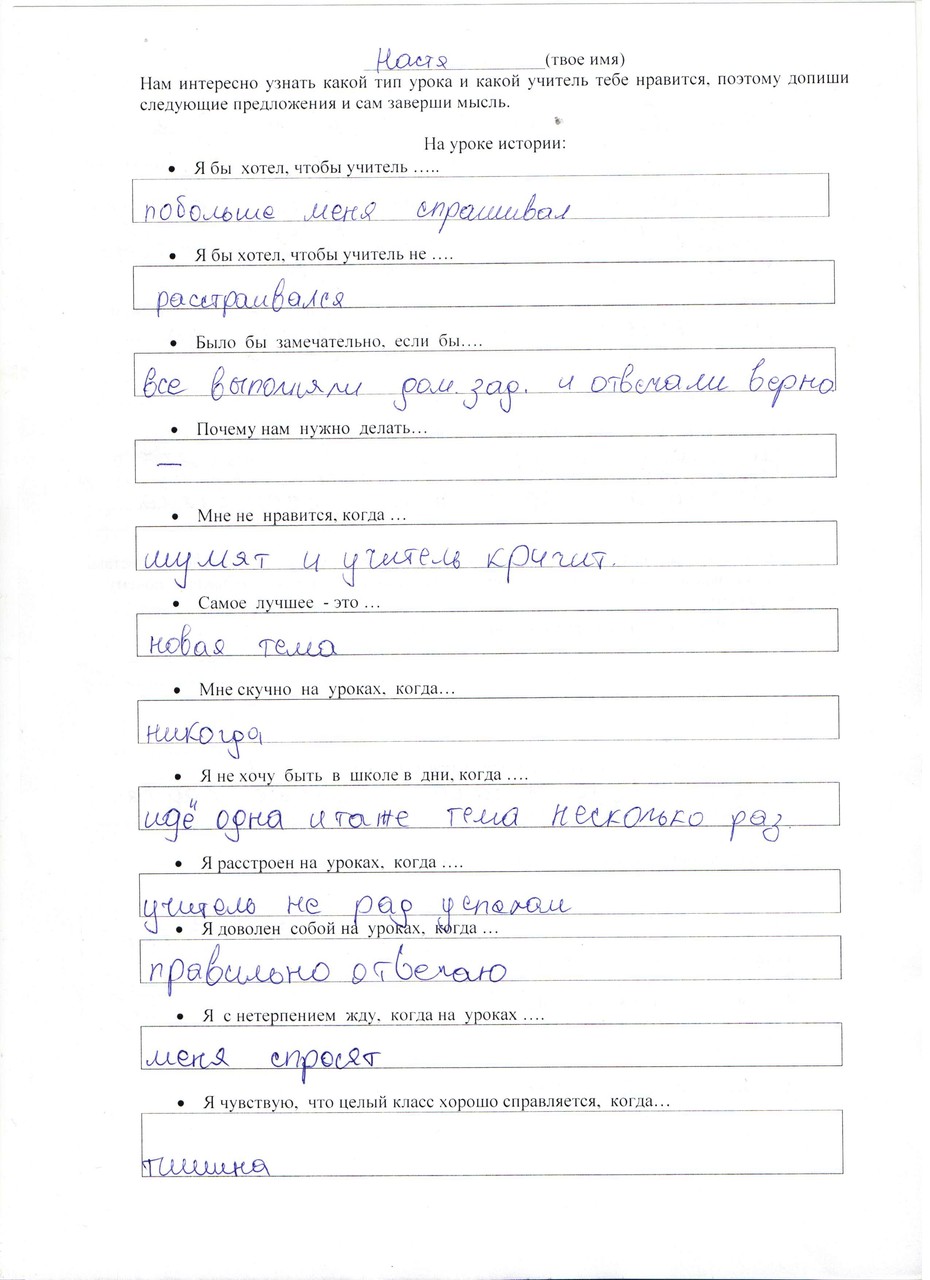 Настя (твое имя)
Нам интересно узнать какой тип урока и какой учитель тебе нравится, поэтому допиши
следующие предложения и сам заверши мысль.
На уроке истории:
• Я бы хотел, чтобы учитель …..
побольше меня спрашивал
• Я бы хотел, чтобы учитель не ….
расстраивался
• Было бы замечательно, если бы….
все выполняли дом. зад. и отвечали верно
• Почему нам нужно делать…
—
• Мне не нравится, когда …
шумят и учитель кричит.
• Самое лучшее - это …
новая тема
• Мне скучно на уроках, когда…
никогда
• Я не хочу быть в школе в дни, когда ….
идё одна и таже тема несколько раз
• Я расстроен на уроках, когда ….
учитель не рад успехам
• Я доволен собой на уроках, когда …
правильно отвечаю
• Я с нетерпением жду, когда на уроках ….
меня спросят
• Я чувствую, что целый класс хорошо справляется, когда…
тишина